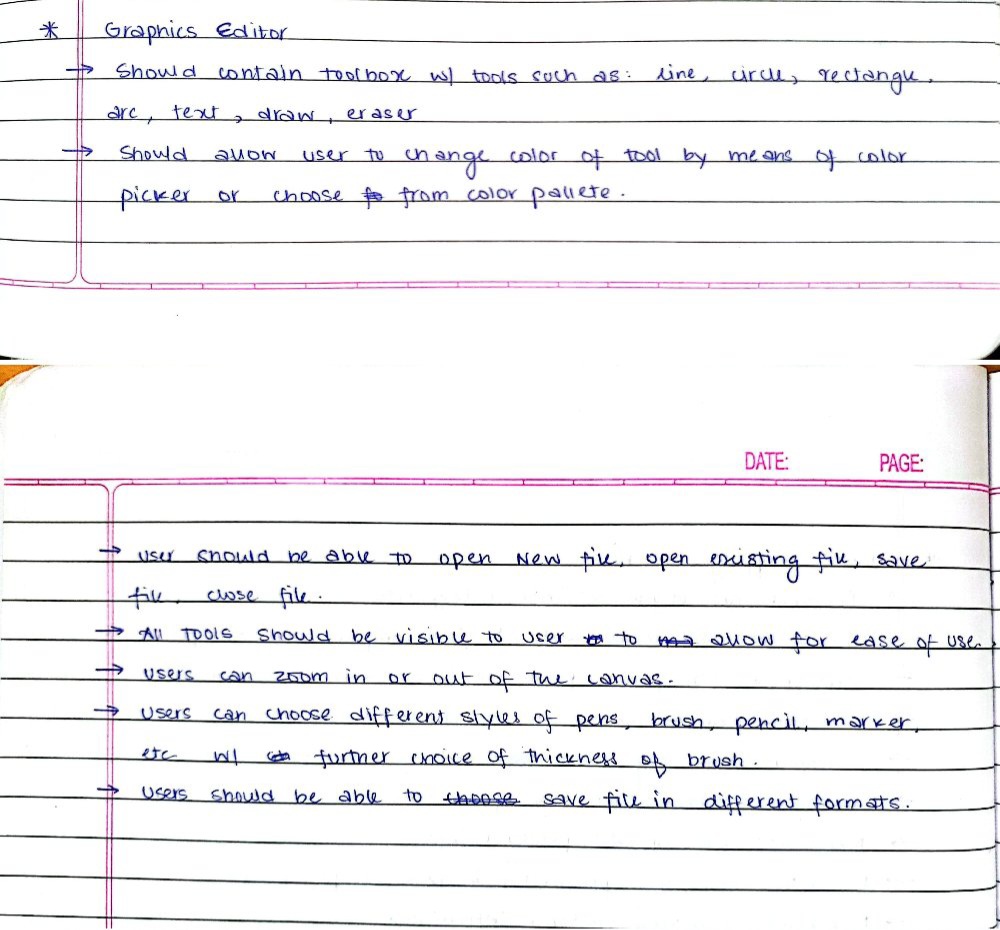 * Graphics Editor
→ Should contain toolbox w/ tools such as: line, circle, rectangle,
arc, text, draw, eraser
→ Should allow user to change color of tool by means of color
picker or choose from color pallete.
DATE: PAGE:
→ User should be able to open New file, open existing file, save
file, close file.
→ All TOOLS should be visible to user to allow for ease of use.
→ Users can zoom in or out of the canvas.
→ Users can choose different styles of pens, brush, pencil, marker,
etc w/ further choice of thickness of brush.
→ Users should be able to choose save file in different formats.